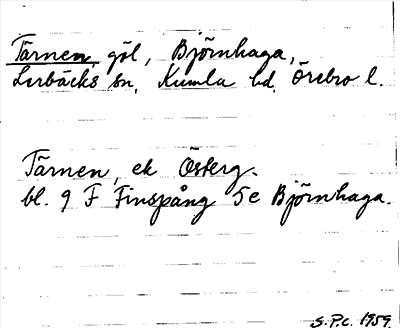 Tärnen, göl, Björnhaga,
Lerbäcks sn, Kumla hd, Örebro l.
Tärnen, ek Österg.
bl. 9 F Finspång 5e Björnhaga.
S.P.c. 1959